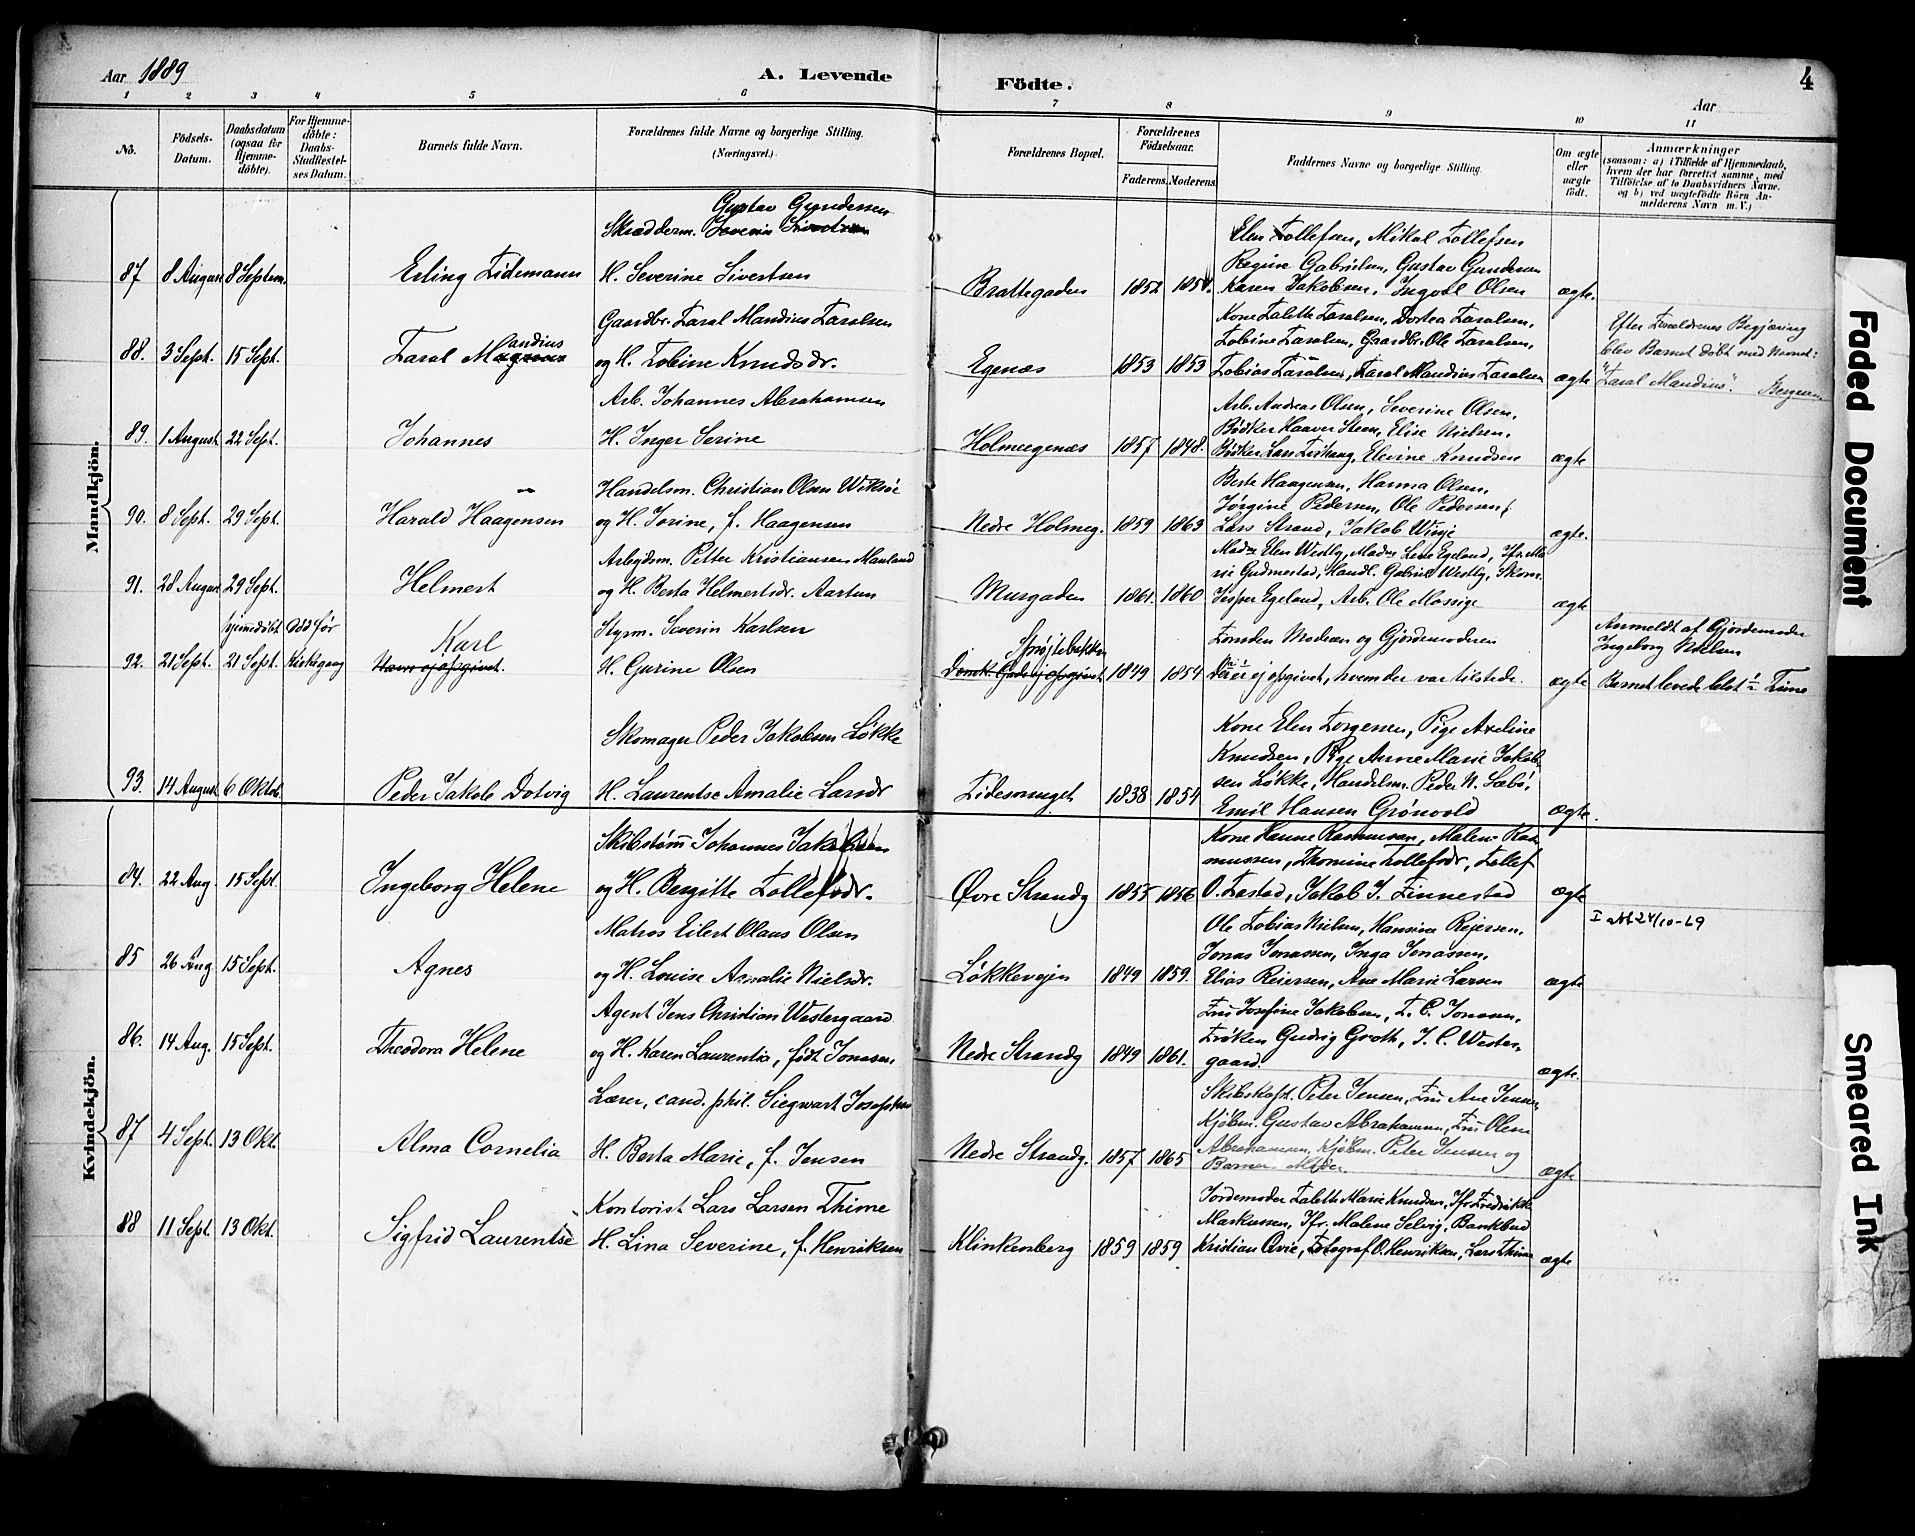 Aar 1889
A. Levende
Födte.
4
Aar
1 2 3 4 5 6 7 8 9 10 11
No.
Födsels-
Datum.
Daabsdatum
(ogsaa for
Hjemme-
döbte).
For Hjemme-
döbte:
Daabs-
Stadfæstel-
ses Datum.
Barnets fulde Navn.
Forældrenes fulde Navne og borgerlige Stilling.
(Næringsvei.)
Forældrenes Bopæl.
Forældrenes
Födselsaar.
Faderens. Moderens.
Faddernes Navne og borgerlige Stilling.
Om ægte
eller
uægte
födt.
Anmærkninger
(saasom: a) i Tilfælde af Hjemmedaab,
hvem der har forrettet samme, med
Tilföielse af to Daabsvidners Navne.
og b) ved uægtefödte Börn An-
melderens Navn m. V.)
Mandkjön.
Gustav Gundersen
Skrædderm. Severin Sivertsen
87 8 August 8 Septem. Erling Tidemann H. Severine Sivertsen Brattegaden 1852 1854. ægte.
Elen Tollefsen, Mikal Tollefsen
Regine Gabrielsen, Gustav Gundersen
Karen Jakobsen, Ingvol Olsen
Gaardbr. Taral Mandius Taralsen
88. 3 Sept. 15 Sept. Taral Mandius og H. Tobine Knudsdr. Egenæs 1853 1853 ægte
Kone Taleth Taralsen, Dortea Taralsen,
Tobine Taralsen, Gaardbr. Ole Taralsen,
Tobias Taralsen, Taral Mandius Taralsen
Efter Forældrenes Begjæring
blev Barnet döbt med Navnet:
"Taral Mandius".
Arb. Johannes Abrahamsen
89. 1 August 22 Sept. Johannes H. Inger Serine Holmeegenæs 1857 1848. ægte
Arb. Andreas Olsen, Severine Olsen,
Bødker Haaver Steen, Elise Nielsen,
Bødker Lars , Elevine Knudsen
Handelsm. Christian Olsen Viksøe
90. 8 Sept. 29 Sept. Harald Haagensen og H. Jorine, f. Haagensen Nedre Holmeg. 1859 1863 ægte.
Berte Haagensen, Hanna Olsen,
Jørgine Pedersen, Ole Pedersen,
Lars Strand, Jakob Wiige
Arbejdsm. Petter Kristiansen Mauland
91. 28 August 29 Sept. Helmert og H. Berta Helmertsdr. Aartun Murgaden 1861. 1860 ægte
Mad. Elen Westly, Mad. Lene Egeland, Jfr. Ma-
rie Gudmestad, Handl. Gabriel Westly, Skom.
Jesper Egeland, Arb. Ole Mossige
hjemmedöbt Död før Karl Styrm. Severin Karlsen Sprøjtebakken
92. 21 Sept. 21 Sept. Kirkegang Navn ej opgivet. H. Gurine Olsen Domk. Gade ej opgivet 1849 1854 ægte
Foruden Moderen og Gjordemoderen
er ej opgivet, hvem der var tilstede.
Anmeldt af Gjordemoder
Ingeborg Nielsen
Barnet levede blot ½ Time
Skomager Peder Jakobsen Løkke
93. 14 August 6 Oktob. Peder Jakob Dotvig H. Laurentse Amalie Larsdr Tidesmuget 1838 1854 ægte.
Kone Elen Torgersen, Pige Axeline
Knudsen, Pige Anne Marie Jakob-
sen Løkke, Handelsm. Peder N. Sæbö,
Emil Hansen Grönvold
Kvindekjön.
Skibstømm. Johannes Jakobsen
84. 22 Aug. 15 Sept Ingeborg Helene og H. Bergitte Tollefsdr. Øvre Strandg 1855 1856 ægte
Kone Hanne Rasmussen, Malene Ras-
mussen, Thomine Tollefsdr, Tollef
O. Tastad, Jakob J. Finnestad
I att 24/10-69
Matros Eilert Olaus Olsen
85 26 Aug 15 Sept. Agnes og H. Louise Amalie Nielsdr. Løkkevejen 1849 1859. ægte
Ole Tobias Nielsen, Hansine Reiersen,
Jonas Jonassen, Inga Jonassen,
Elias Reiersen, Ane Marie Larsen
Agent Jens Christian Westergaard
86. 14 Aug. 15 Sept. Theodora Helene og H. Karen Laurentia, født Jonassen, Nedre Strandg 1849 1861. ægte.
Fru Josefine Jakobsen, T. C. Jonassen,
Frøken Gudrig Groth, J. C. Wester-
gaard.
Lærer, cand. phil. Siegwart Josephsen
87 4 Sept. 13 Okt. Alma Cornelia H. Berta Marie, f. Jensen Nedre Strandg. 1857 1865 ægte
Skibskapt. Peter Jensen, Fru Ane Jensen,
Kjøbm. Gustav Abrahamsen, Fru Olene
Abrahamsen, Kjøbm. Peter Jensen og
Barnets Moder.
Kontorist Lars Larsen Thime
88 11 Sept. 13 Okt. Sigfrid Laurentse H. Lina Severine, f. Henriksen Klinkenberg 1859 1859. ægte
Jordemoder Taleth Marie Knudsen, Jfr. Fredrikke
Markussen, Jfr. Malene Selvig, Bankbud
Kristian Qvie, Fotograf O. Henriksen, Lars Thime
Faded Document
Smeared Ink